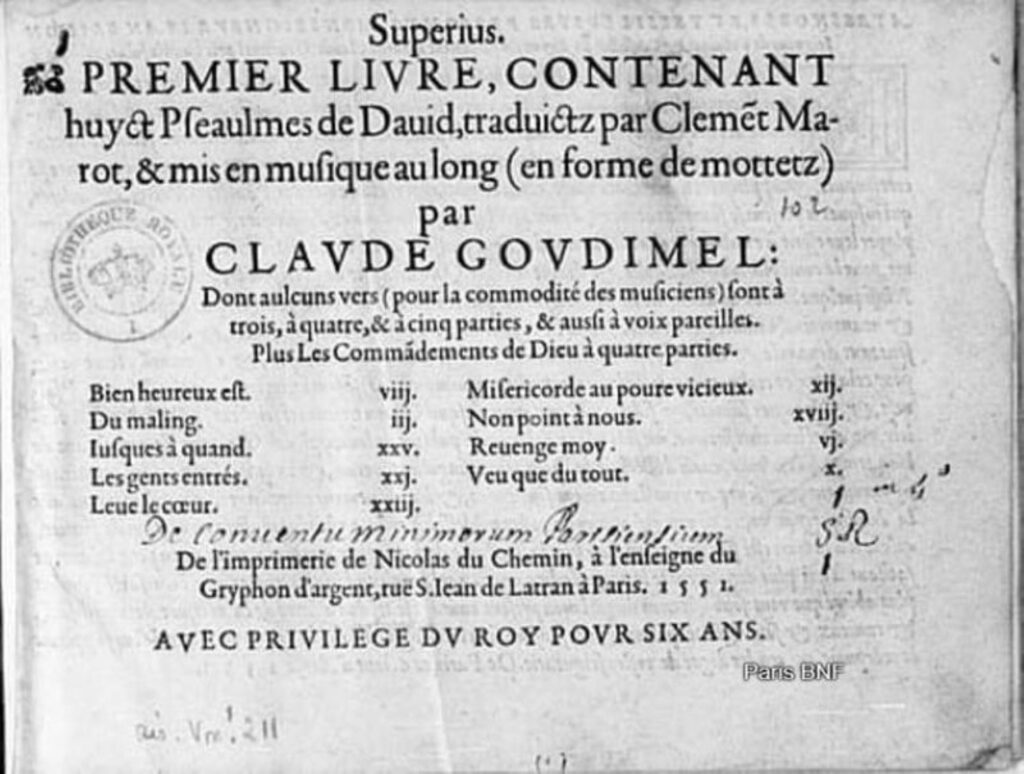 Superius.
PREMIER LIVRE, CONTENANT
huyct Pſeaulmes de Dauid, traduictz par Clemẽt Ma-
rot, & mis en muſique au long (en forme de mottetz)
par
102
CLAVDE GOVDIMEL:
BIBLIOTHEQUE ROYALE
Dont aulcuns vers (pour la commodité des muſiciens) ſont à
trois, à quatre, & à cinq parties, & auſsi à voix pareilles.
Plus Les Commãdements de Dieu à quatre parties.
Bien heureux eſt. viij. Miſericorde au poure vicieux. xij.
Du maling. iij. Non point à nous. xviij.
Iuſques à quand. xxv. Reuenge moy. vj.
Les gents entrés. xxj. Veu que du tout. x.
Leue le cœur. xxiij.
De Conuentu minimorum Parisiensium
De l'imprimerie de Nicolas du Chemin, à l'enſeigne du
Gryphon d'argent, rue S. Iean de Latran à Paris. 1551.
AVEC PRIVILEGE DV ROY POVR SIX ANS.
Paris BNF
Vm¹. 211